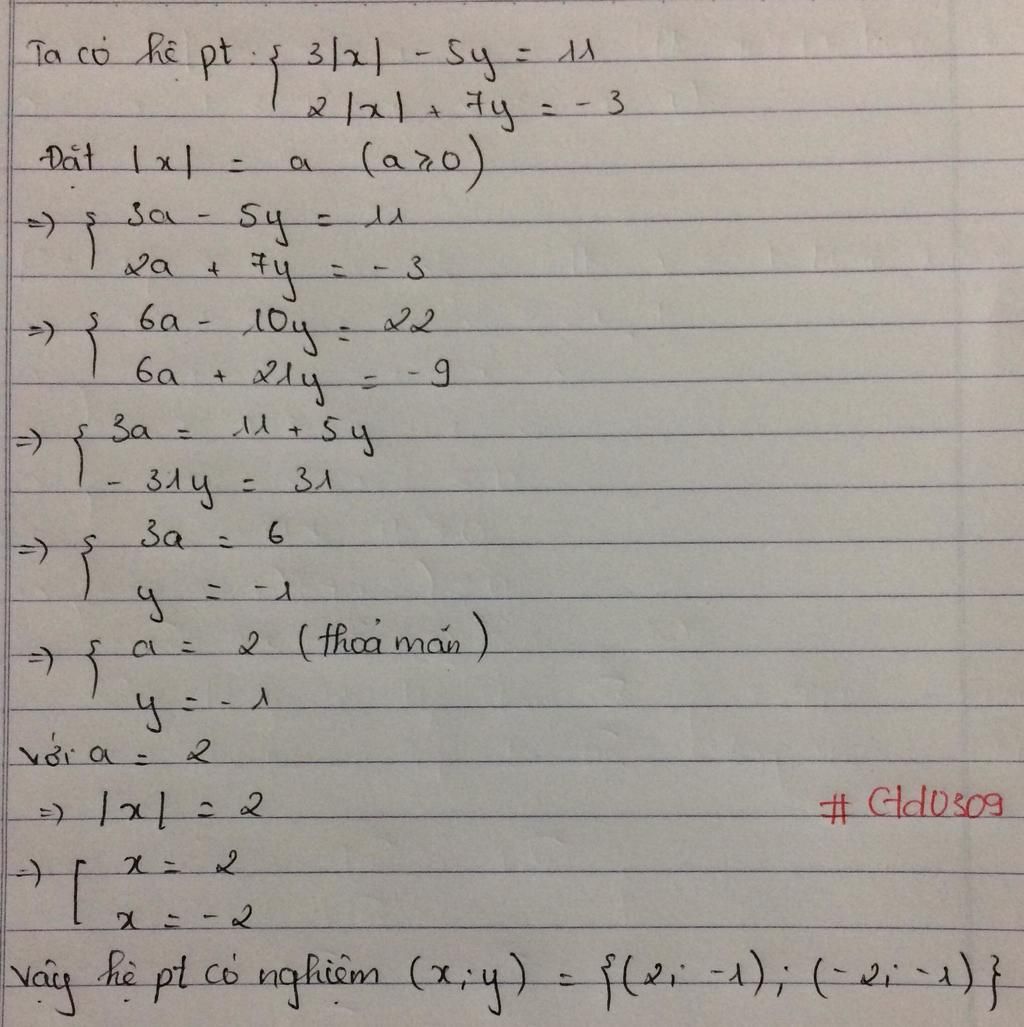 Ta có hệ pt: { 3|x| - 5y = 11
2|x| + 7y = -3
Đặt |x| = a (a ≥ 0)
=> { 3a - 5y = 11
2a + 7y = -3
=> { 6a - 10y = 22
6a + 21y = -9
=> { 3a = 11 + 5y
- 31y = 31
=> { 3a = 6
y = -1
=> { a = 2 (thoả mãn)
y = -1
với a = 2
=> |x| = 2
# Gld0309
=> [ x = 2
x = -2
Vậy hệ pt có nghiệm (x;y) = {(2; -1); (-2; -1)}